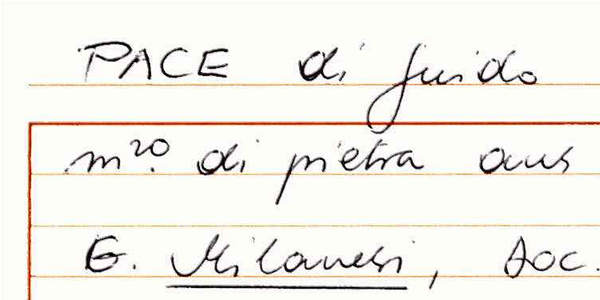 PACE di Guido
m.ro di pietra aus
G. Milanesi, Doc.